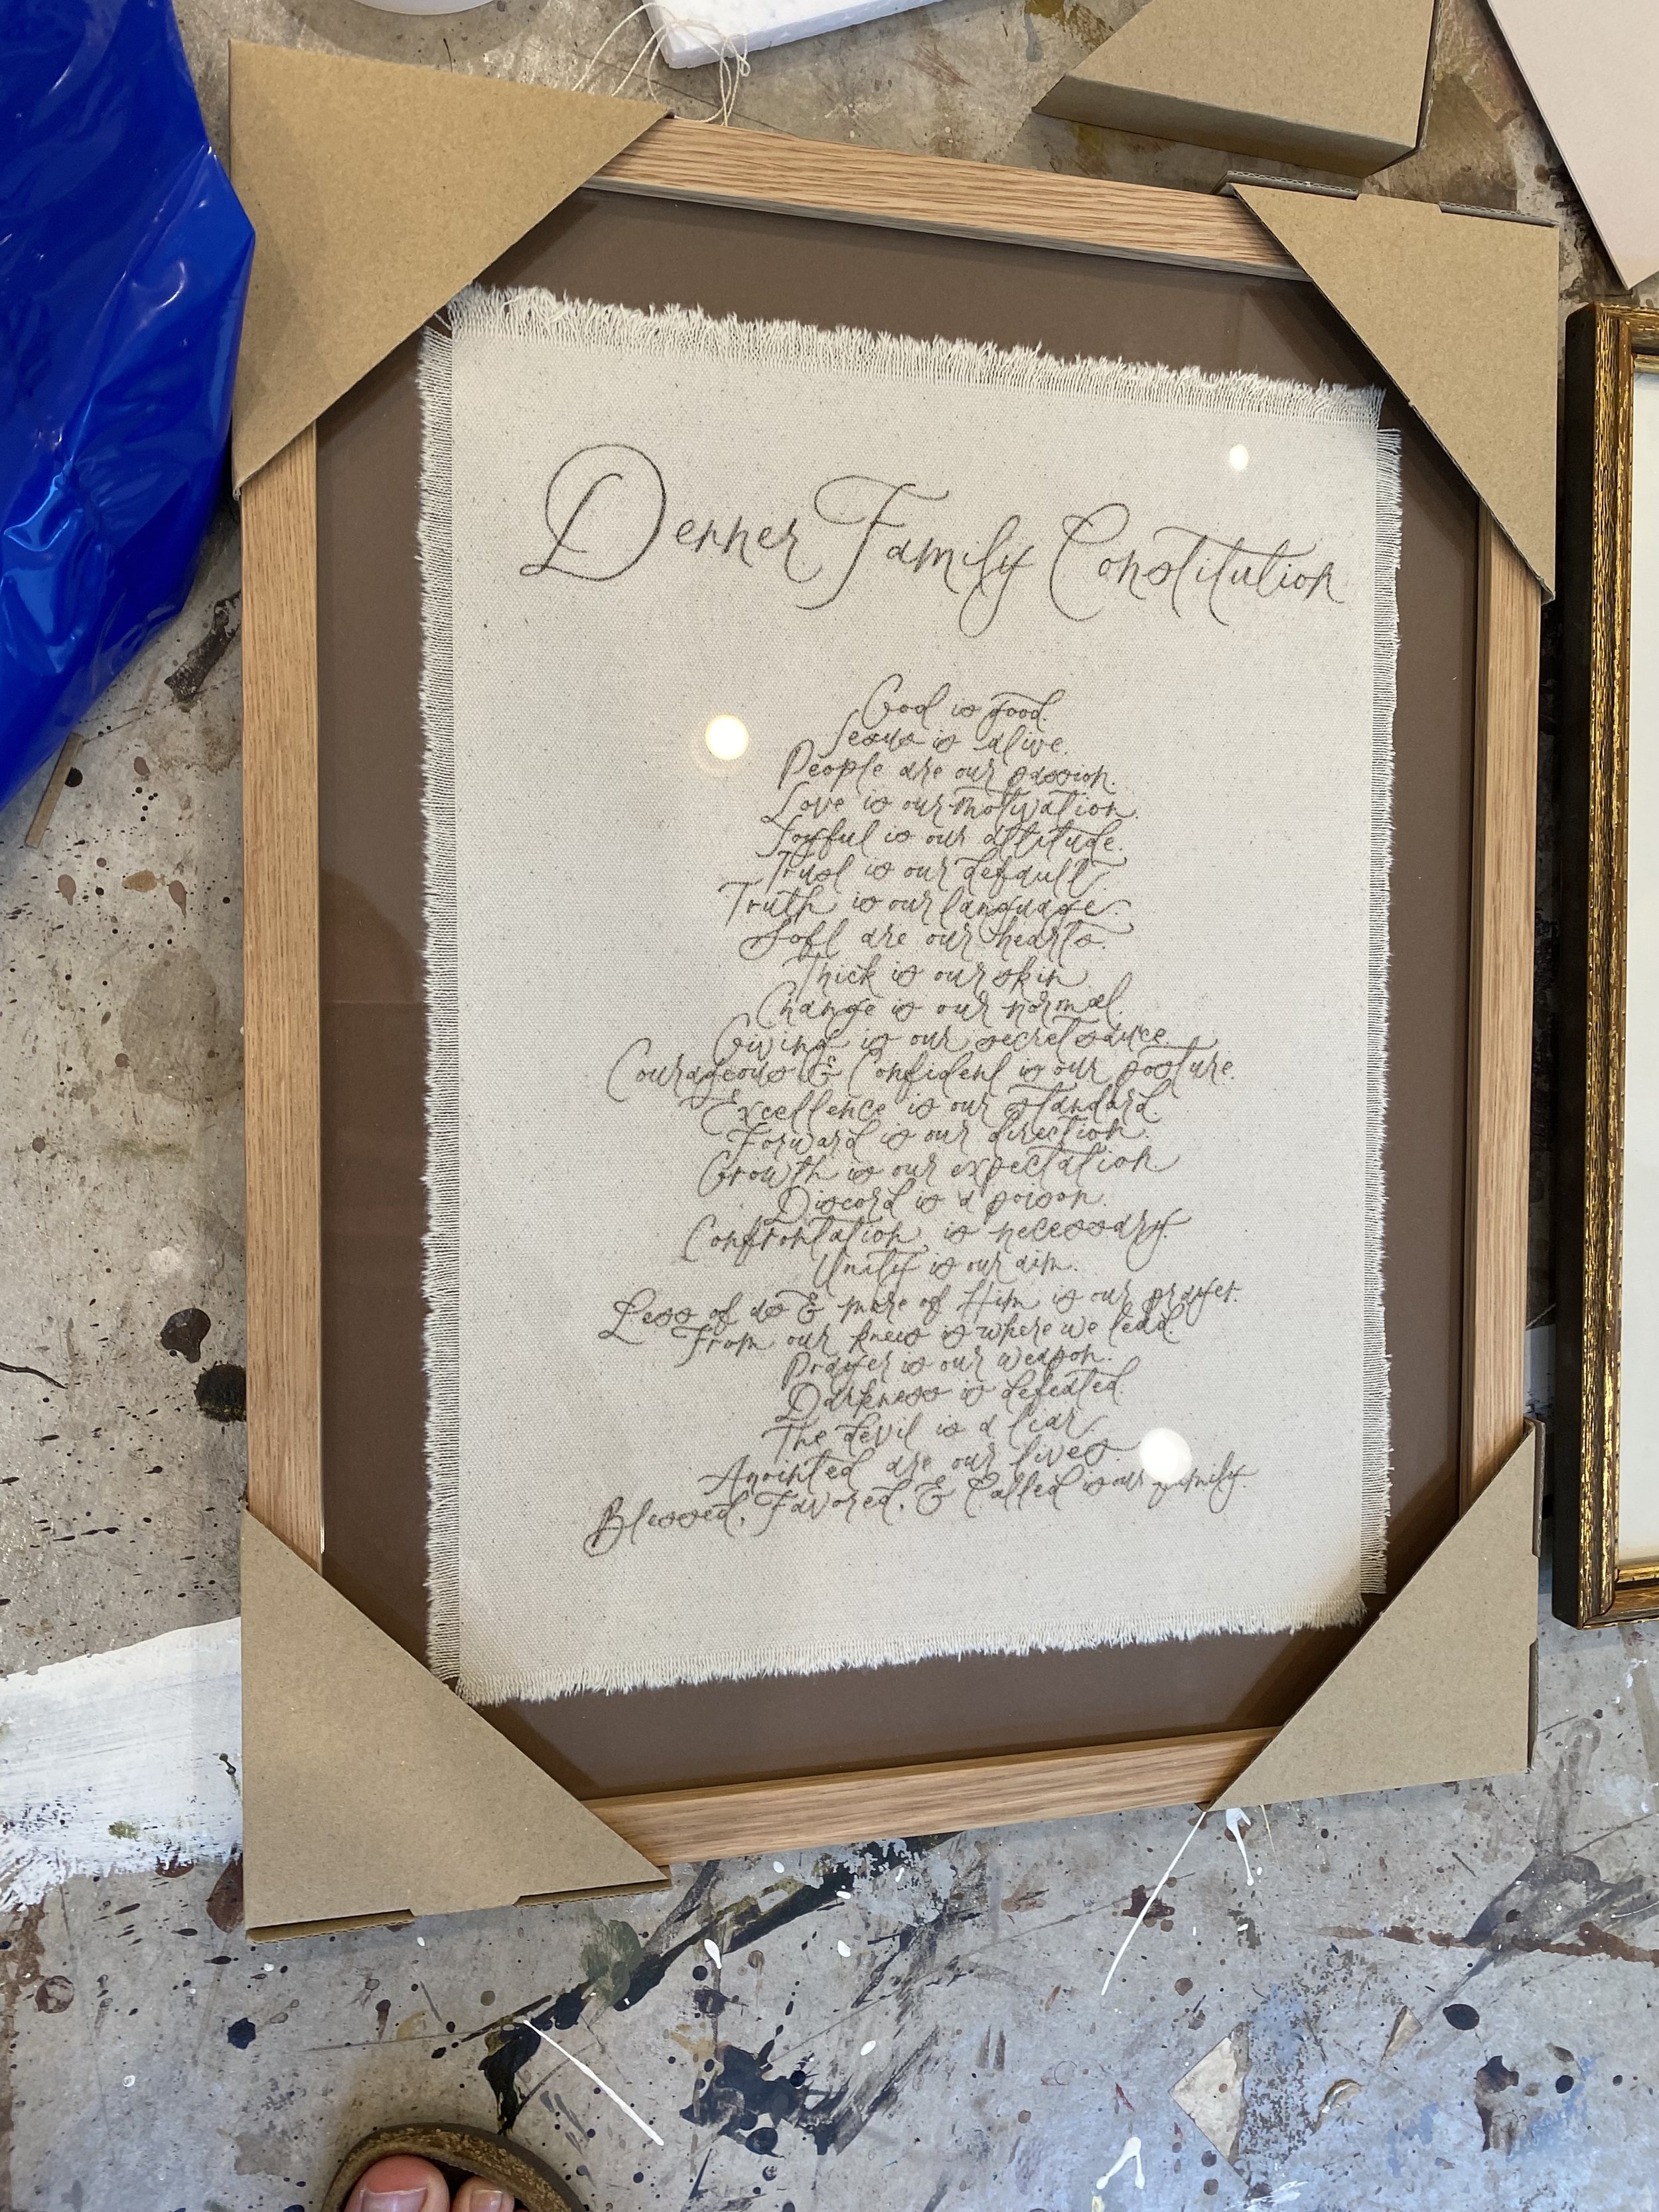 Denner Family Constitution
God is good.
Jesus is alive.
People are our passion.
Love is our motivation.
Joyful is our attitude.
Trust is our default.
Truth is our language.
Soft are our hearts.
Thick is our skin.
Change is our normal.
Giving is our secret sauce.
Courageous & Confident is our posture.
Excellence is our standard.
Forward is our direction.
Growth is our expectation
Discord is a poison.
Confrontation is necessary.
Unity is our aim.
Less of us & more of Him is our prayer.
From our knees is where we lead.
Prayer is our weapon.
Darkness is defeated.
The devil is a liar.
Anointed are our lives.
Blessed, Favored, & Called is our family.